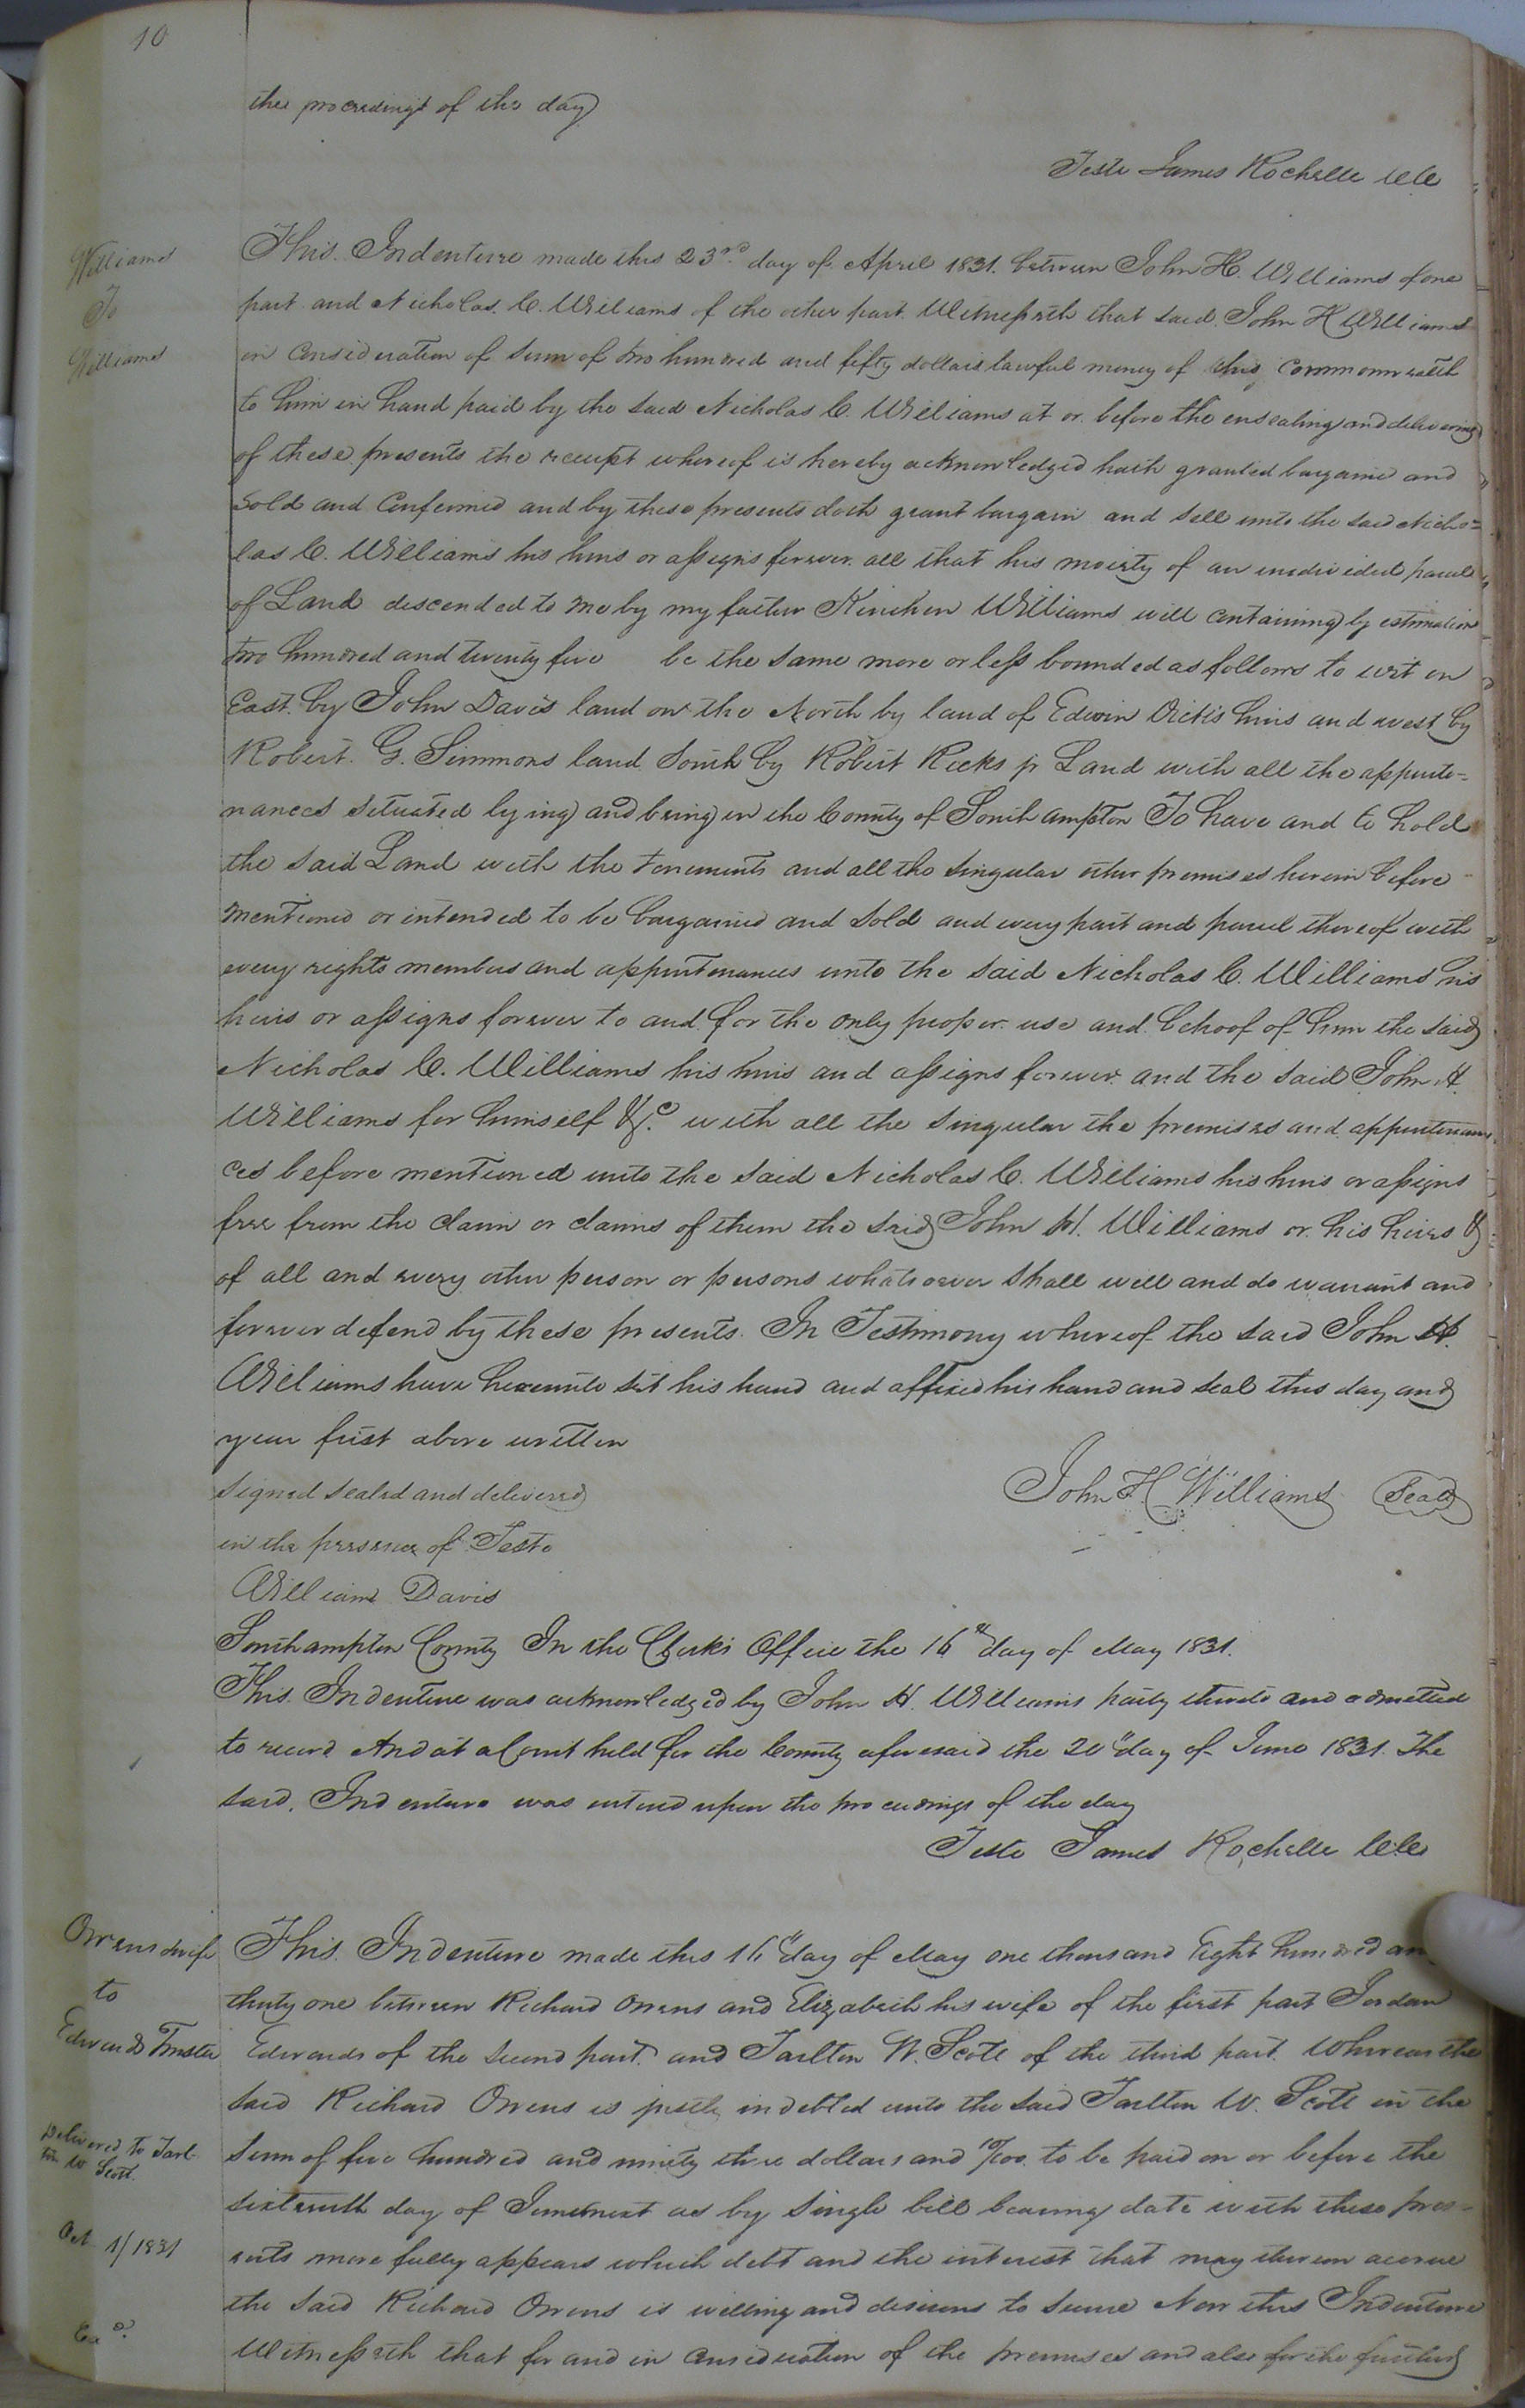 10
the proceedings of the day
Teste James Rochelle CCC
Williams
To
Williams
This Indenture made this 23rd day of April 1831. between John H. Williams of one
part and Nicholas C. Williams of the other part Witnesseth that said John H Williams
in Consideration of sum of two hundred and fifty dollars lawful money of this Commonwealth
to him in hand paid by the said Nicholas C. Williams at or before the ensealing and delivering
of these presents the receipt whereof is hereby acknowledged hath granted bargained and
Sold and Confirmed and by these presents doth grant bargain and sell unto the said Nicho=
las C. Williams his heirs or assigns forever all that his moiety of an undivided parcel
of Land descended to me by my father Kinchen Williams will containing by estimation
two hundred and twenty five be the same more or less bounded as follows to wit on
East by John Davis land on the North by land of Edwin Dicks heirs and west by
Robert G. Simmons land South by Robert Ricks jr Land with all the appurte=
nances situated lying and being in the County of Southampton To have and to hold
the said Land with the tenements and all the singular other premises herein before
mentioned or intended to be bargained and sold and every part and parcel thereof with
every rights members and appurtenances unto the said Nicholas C. Williams his
heirs or assigns forever to and for the only proper use and behoof of him the said
Nicholas C. Williams his heirs and assigns forever and the said John H.
Williams for himself &c with all the singular the premises and appurtenan
ces before mentioned unto the said Nicholas C. Williams his heirs or assigns
free from the claim or claims of them the said John H. Williams or his heirs &
of all and every other person or persons whatsoever shall will and do warrant and
forever defend by these presents. In Testimony whereof the said John H.
Williams have hereunto set his hand and affixed his hand and seal this day and
year first above written
Signed sealed and delivered
in the presence of Teste
William Davis
John H Williams Seal
Southampton County In the Clerks Office the 16th day of May 1831.
This Indenture was acknowledged by John H. Williams party thereto and admitted
to record And at a Court held for the County aforesaid the 20th day of June 1831. The
said Indenture was entered upon the proceedings of the day
Teste James Rochelle CCC
Owens & wife
to
Edwards Trustee
Delivered to Tarl-
ton W Scott.
Oct 1/1831
Exd
This Indenture made this 16th day of May one thousand Eight hundred an
thirty one between Richard Owens and Elizabeth his wife of the first part Jordan
Edwards of the second part and Tarlton W. Scott of the third part. Whereas the
said Richard Owens is justly indebted unto the said Tarlton W. Scott in the
Sum of five hundred and ninety three dollars and 10/100 to be paid on or before the
sixteenth day of June next as by single bill bearing date with these pres=
ents more fully appears which debt and the interest that may thereon accrue
the said Richard Owens is willing and desirous to secure Now this Indenture
Witnesseth that for and in Consideration of the premises and also for the further